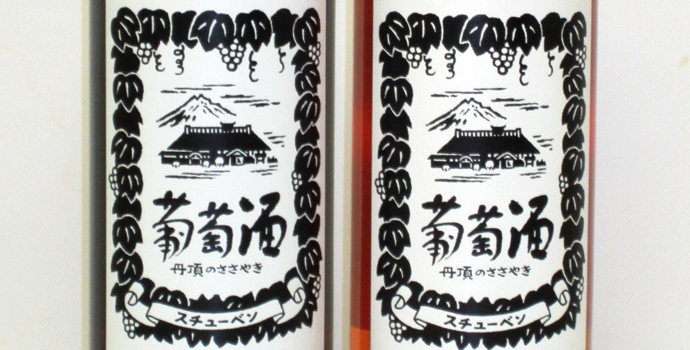 葡萄酒
丹頂のささやき
スチューベン
葡萄酒
丹頂のささやき
スチューベン